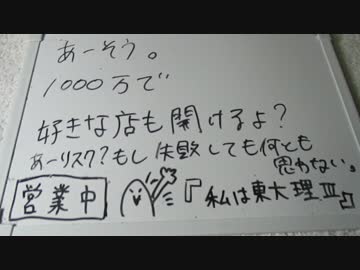 あーそう。
1000万で
好きな店も開けるよ?
あーリスク?もし失敗しても何とも
思わない。
営業中
『私は東大理Ⅲ』